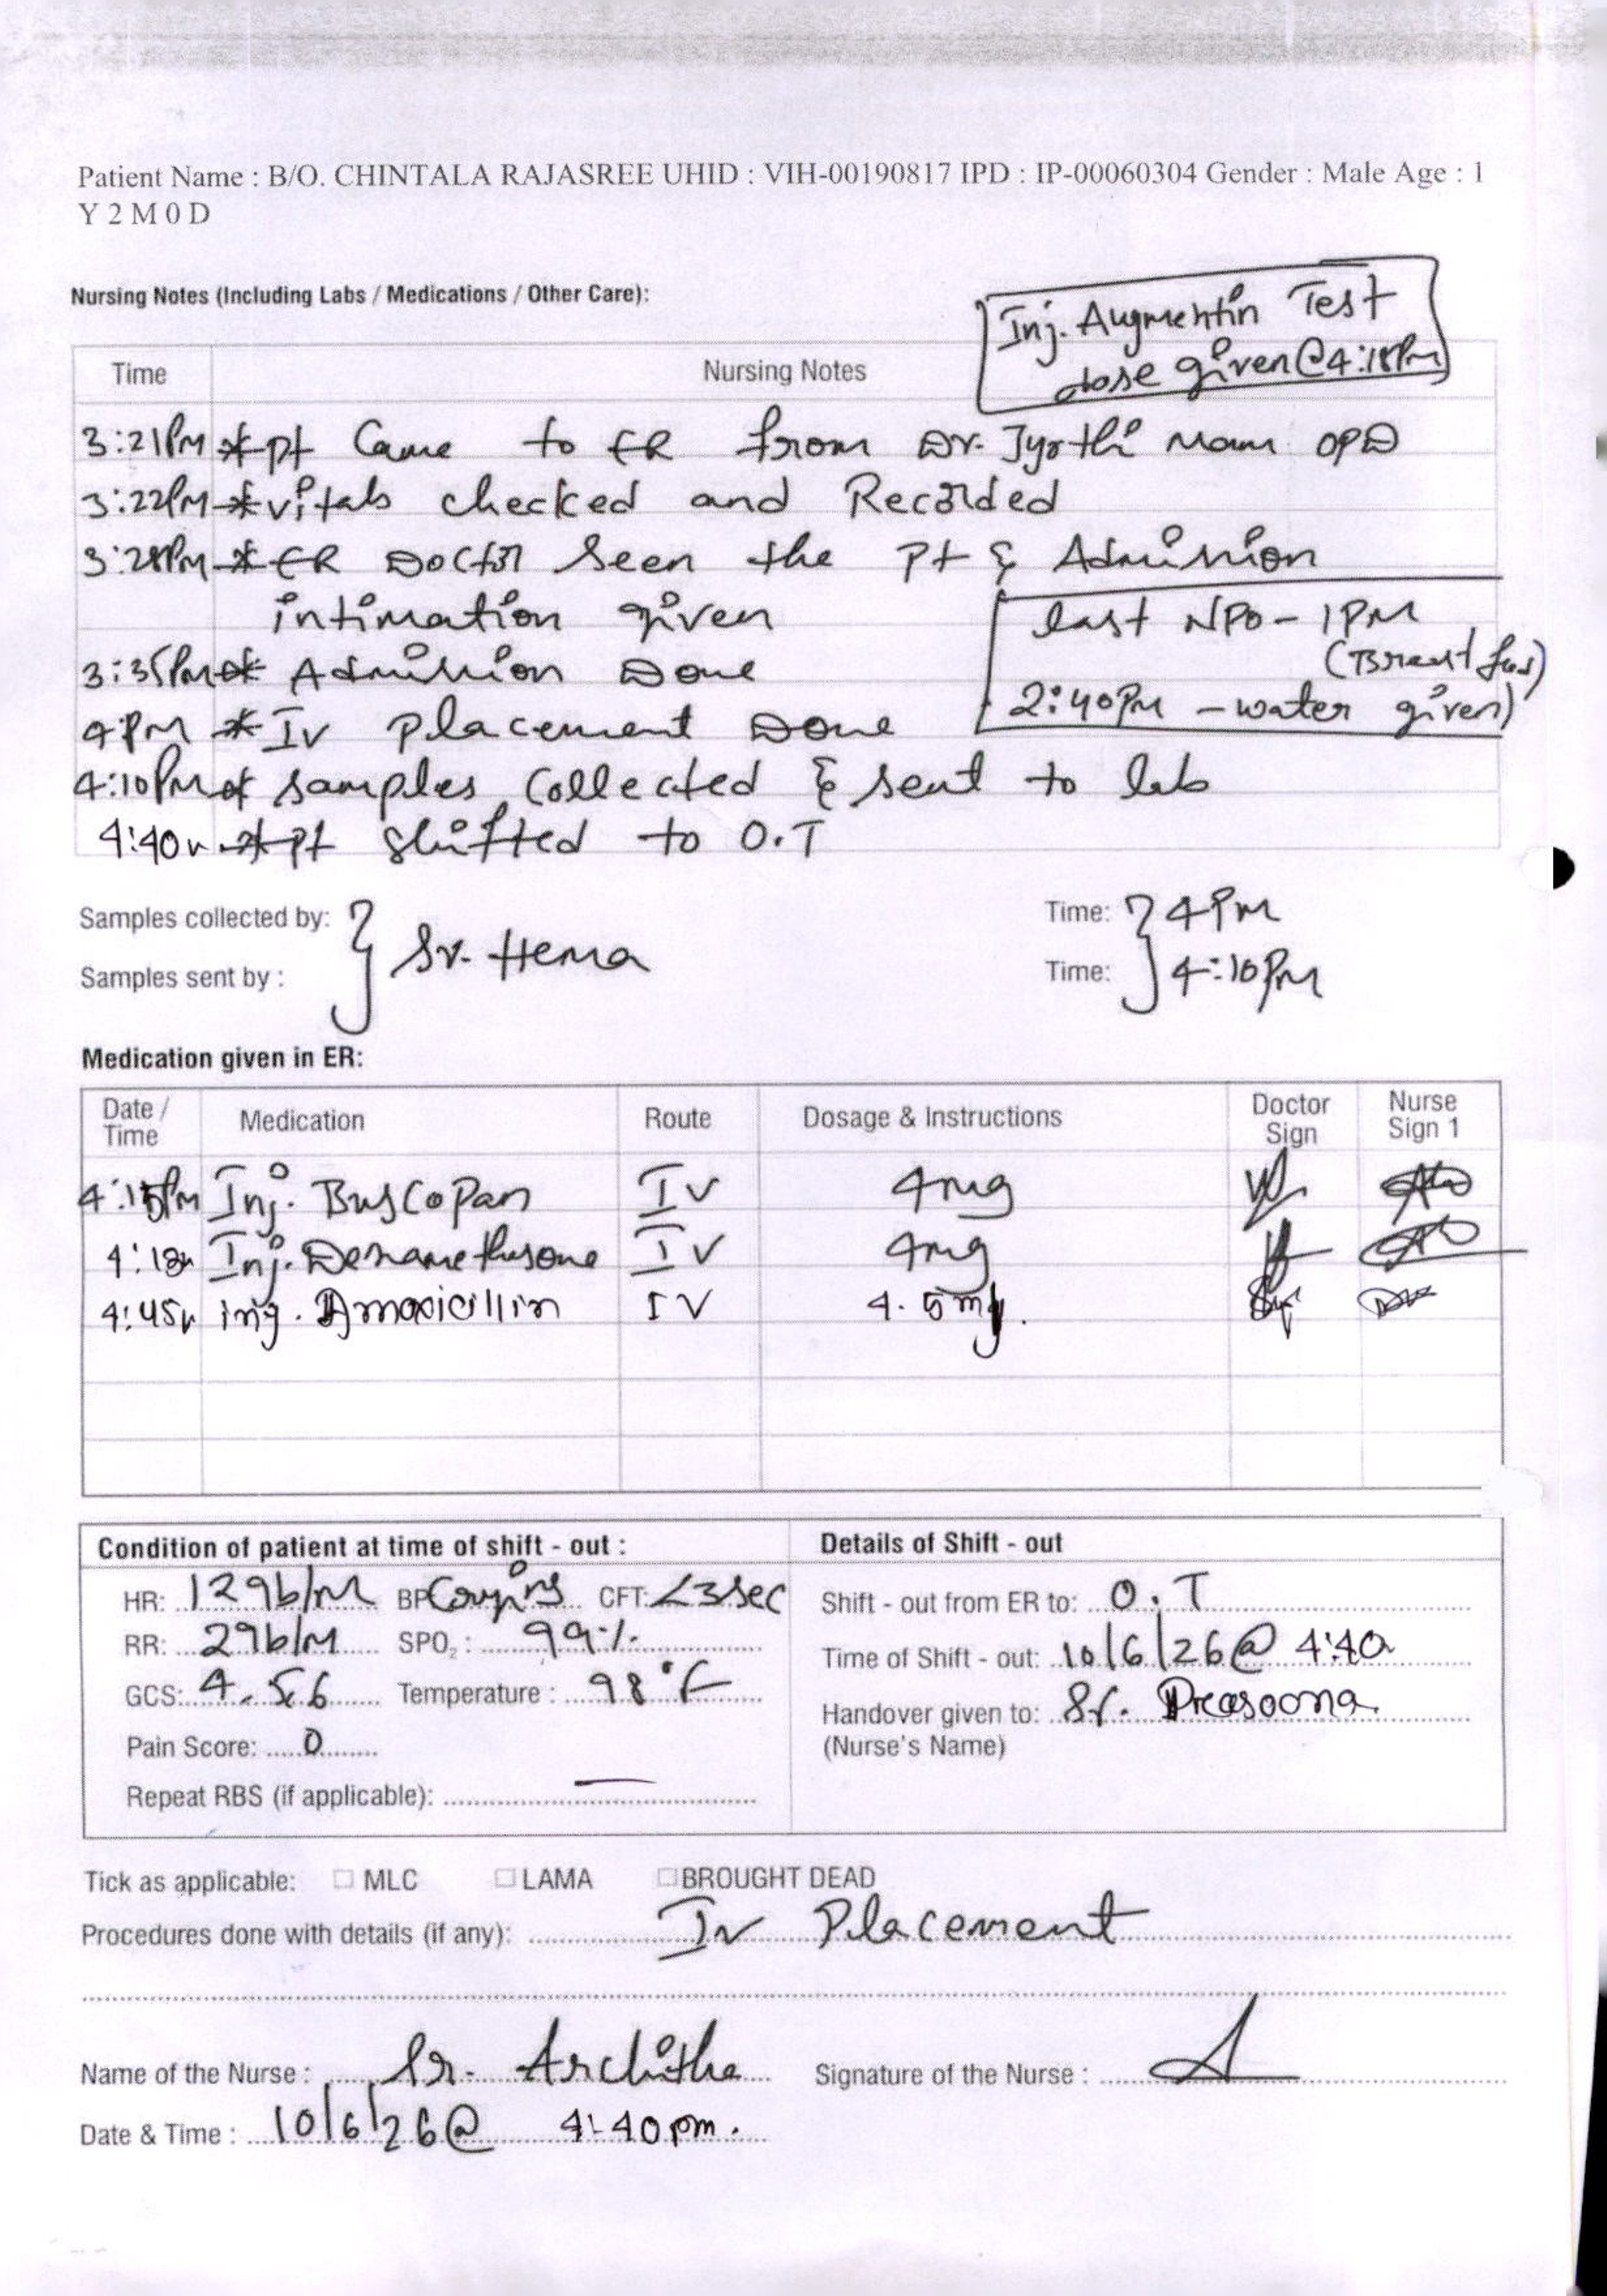 Patient Name : B/O. CHINTALA RAJASREE UHID : VIH-00190817 IPD : IP-00060304 Gender : Male Age : 1
Y 2 M 0 D
Nursing Notes (Including Labs / Medications / Other Care):
Inj. Augmentin Test
dose given @ 4:18PM
Time Nursing Notes
3:21PM * pt Came to ER from Dr. Jyothi Mam OPD
3:22PM * vitals checked and Recorded
3:28PM * ER Doctor seen the pt & Admission
intimation given
last NPO - 1PM
(Breast fed)
2:40PM - water given)
3:35PM * Admission Done
4PM * IV placement Done
4:10PM * samples collected & sent to lab
4:40 * pt shifted to O.T
Samples collected by: Time: 4PM
Sr. Hema
Samples sent by : Time: 4:10PM
Medication given in ER:
Date / Time Medication Route Dosage & Instructions Doctor Sign Nurse Sign 1
4:15PM Inj. Buscopan IV 4mg
4:18 Inj. Dexamethasone IV 4mg
4:45 inj. Amoxicillin IV 4.5mg.
Condition of patient at time of shift - out : Details of Shift - out
HR: 129b/M BP CFT: <3sec Shift - out from ER to: O.T
RR: 29b/M SPO2 : 99% Time of Shift - out: 10/6/26 @ 4:40
GCS: 4.5.6 Temperature : 98°F Handover given to: Sr. Prasoona
Pain Score: 0 (Nurse's Name)
Repeat RBS (if applicable): —
Tick as applicable: MLC LAMA BROUGHT DEAD
Procedures done with details (if any): IV Placement
Name of the Nurse : Sr. Architha Signature of the Nurse :
Date & Time : 10/6/26 @ 4:40pm.